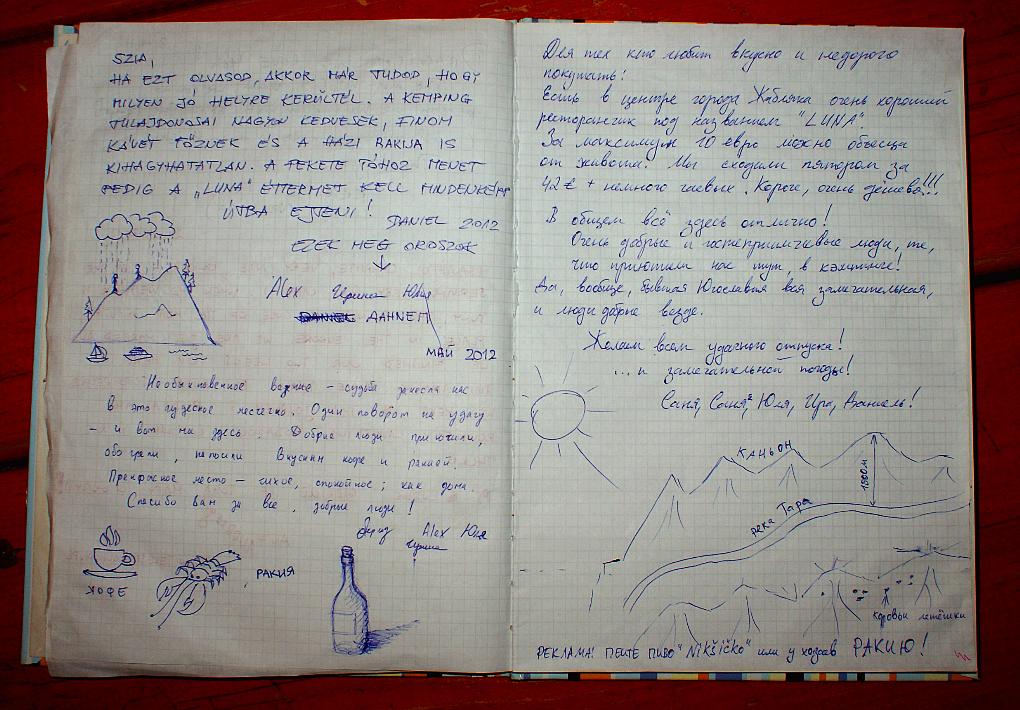 SZIA,
HA EZT OLVASOD, AKKOR MÁR TUDOD, HOGY
MILYEN JÓ HELYRE KERÜLTÉL. A KEMPING
TULAJDONOSAI NAGYON KEDVESEK, FINOM
KÁVÉT FŐZNEK ÉS A HÁZI RAKIJA IS
KIHAGYHATATLAN. A FEKETE TÓHOZ MENET
PEDIG A „LUNA" ÉTTERMET KELL MINDENKÉPP
ÚTBA EJTENI!
DANIEL 2012
EZEK MEG OROSZOK
Alex Ирина Юля
DANIEL ДАНИЕЛ
МАЙ 2012
Необыкновенное везение – судьба занесла нас
в это чудесное местечко. Один поворот на удачу
– и вот мы здесь. Добрые люди приютили,
обогрели, напоили вкусным кофе и ракией!
Прекрасное место – тихое, спокойное; как дома.
Спасибо вам за все, добрые люди!
Alex Юля
Ирина
КОФЕ
РАКИЯ
Для тех кто любит вкусно и недорого
покушать!
Есть в центре города Жабляка очень хороший
ресторанчик под названием "LUNA"
За максимум 10 евро можно объесца
от живота! Мы сходили пятером за
42€ + немного чаевых. Короче, очень дёшево!!!
В общем всё здесь отлично!
Очень добрые и гостеприимчивые люди, те,
что приютили нас тут, в кэмпинге!
Да, вообще, бывшая Югославия вся замечательная,
и люди добрые везде.
Желаем всем удачного отпуска!
... и замечательной погоды!
Саня, Саня², Юля, Ира, Даниель!
КАНЬОН
1500м
река Тара
коровьи лепёшки
РЕКЛАМА: ПЕЙТЕ ПИВО "Nikšičko" или у хозяев РАКИЮ!